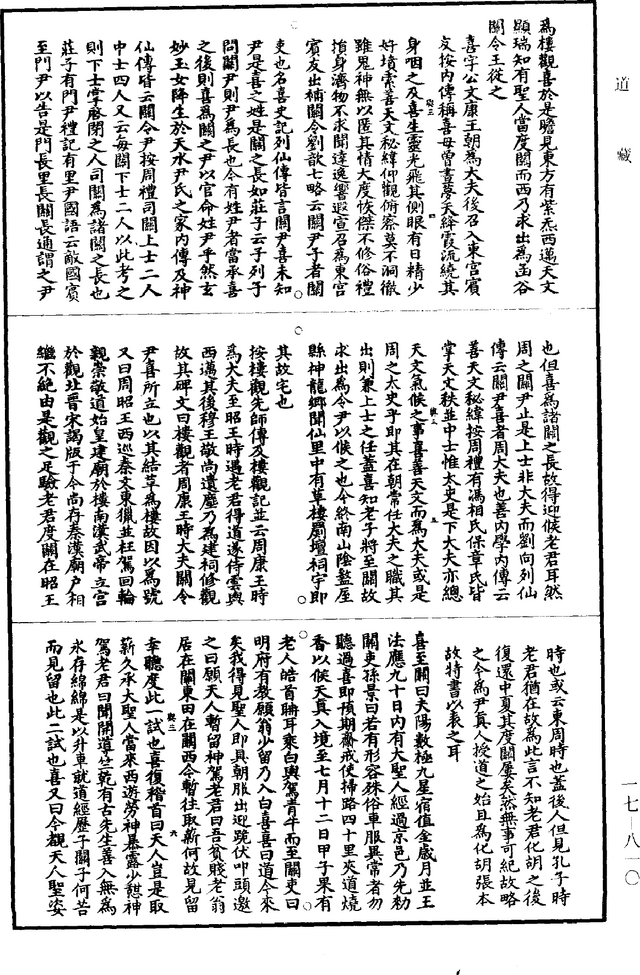 道藏
爲樓觀喜於是瞻見東方有紫炁西邁天文
顯瑞知有聖人當度關而西乃求出爲函谷
關令王從之
喜字公文康王朝爲大夫後召入東宮賓
友按内傳稱喜母曾晝夢天絳霞流繞其
身咽之及喜生靈光飛其側眼有日精少
好墳索善天文秘緯仰觀俯察莫不洞徹
雖鬼神無以匿其情大度恢傑不修俗禮
損身濟物不求聞達逸響遐宣召爲東宮
賓友出補關令劉歆七略云關尹子者關
吏也名喜史記列仙傳皆言關尹喜未知
尹是喜之姓是關之長如莊子云子列子
問關尹則尹爲長也令有姓尹者當承喜
之後則喜爲關之尹以官命姓尹乎然玄
妙玉女降生於天水尹氏之家内傳及神
仙傳皆云關令尹按周禮司關上士二人
中士四人又云每關下士二人以此考之
則下士掌啓閉之人司關爲諸關之長也
莊子有門尹禮記有里尹國語云敵國賓
至門尹以告是門長里長關長通謂之尹
也但喜爲諸關之長故得迎候老君耳然
周之關尹止是上士非大夫而劉向列仙
傳云關尹喜者周大夫也善内學内傳云
善天文秘緯按周禮有馮相氏保章氏皆
掌天文秩並中士惟太史是下大夫亦總
天文氣候之事喜善天文而爲大夫或是
周之太史乎即其在朝常任大夫之職其
出則兼上士之任蓋喜知老子將至關故
求出爲令尹以候之也今終南山陰盩厔
縣神龍鄉聞仙里中有草樓觀壇祠宇即
其故宅也
按樓觀先師傳及樓觀記並云周康王時
爲大夫至昭王時遇老君得道遂侍雲輿
西邁其後穆王敬尚遺塵乃爲建祠修觀
故其碑文曰樓觀者周康王時大夫關令
尹喜所立也以其結草爲樓故因以爲號
又曰周昭王西巡秦文東獵並枉駕回輪
親崇敬道始皇建廟於樓南漢武帝立宮
於觀北晉宋謁版于今尚存秦漢廟戶相
繼不絶由是觀之足驗老君度關在昭王
時也或云東周時也蓋後人但見孔子時
老君猶在故爲此言不知老君化胡之後
復還中夏其度關屢矣然無事可紀故略
之今爲尹真人授道之始且爲化胡張本
故特書以表之耳
喜至關曰夫陽數極九星宿值金歲月並王
法應九十日内有大聖人經過京邑乃先勑
關吏孫景曰若有形容殊俗車服異常者勿
聽過喜即預期齋戒使掃路四十里夾道燒
香以候天真入境至七月十二日甲子果有
老人皓首聃耳乘白輿駕青牛而至關吏曰
明府有教願翁少留乃入白喜喜曰道今來
矣我得見聖人即具朝服出迎跪伏叩頭邀
之曰願天人暫留神駕老君曰吾貧賤老翁
居在關東田在關西今暫往取薪何故見留
幸聽度此一試也喜復稽首曰天人豈是取
薪久承大聖人當來西遊勞神暴露少憩神
駕老君曰聞開道竺乾有古先生善入無爲
永存綿綿是以升車就道經歷子關子何苦
而見留也此二試也喜又曰今觀天人聖姿
一七—八一〇